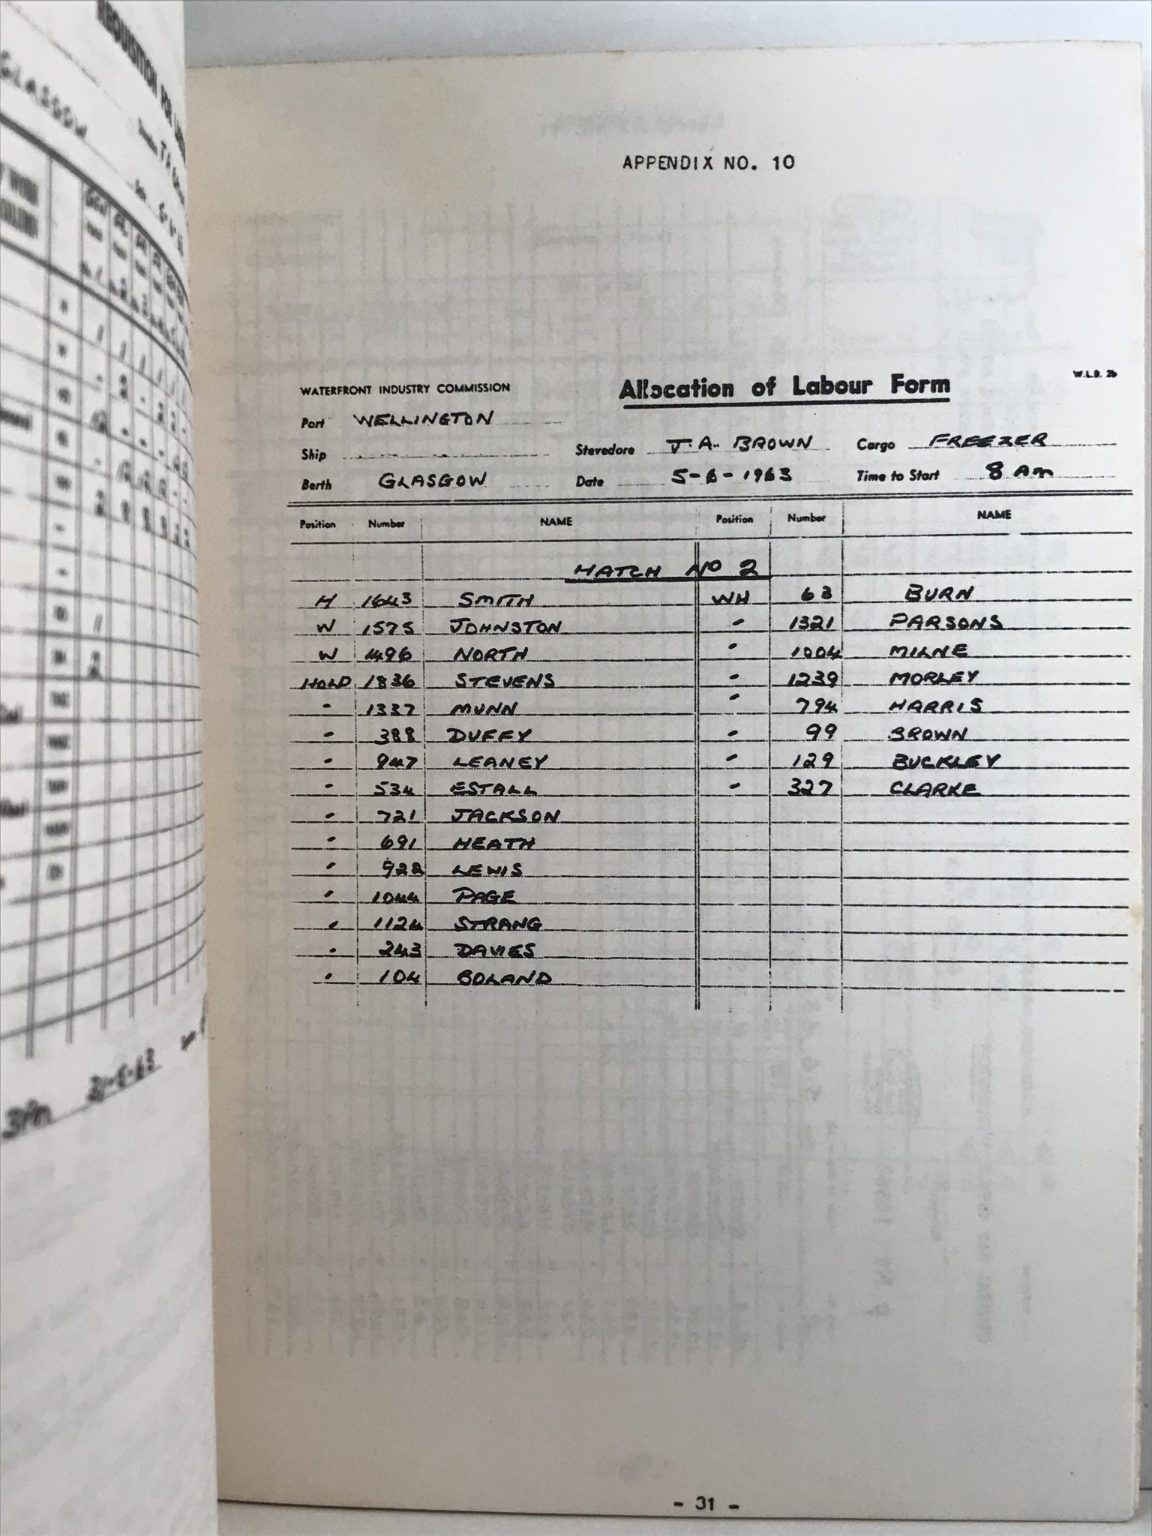 REQUISITION FOR
GLASGOW
3PM 31-5-63
APPENDIX NO. 10
WATERFRONT INDUSTRY COMMISSION Allocation of Labour Form W.L.B. 2b
Port WELLINGTON
Ship Stevedore J.A. BROWN Cargo FREEZER
Berth GLASGOW Date 5-6-1963 Time to Start 8 AM
Position Number NAME Position Number NAME
HATCH NO 2
H 1643 SMITH WH 63 BURN
W 1575 JOHNSTON " 1321 PARSONS
W 1496 NORTH " 1004 MILNE
HOLD 1836 STEVENS " 1239 MORLEY
" 1337 MUNN " 794 HARRIS
" 388 DUFFY " 99 BROWN
" 947 LEANEY " 129 BUCKLEY
" 534 ESTALL " 327 CLARKE
" 721 JACKSON
" 691 HEATH
" 922 LEWIS
" 1044 PAGE
" 1124 STRANG
" 243 DAVIES
" 104 BOLAND
- 31 -